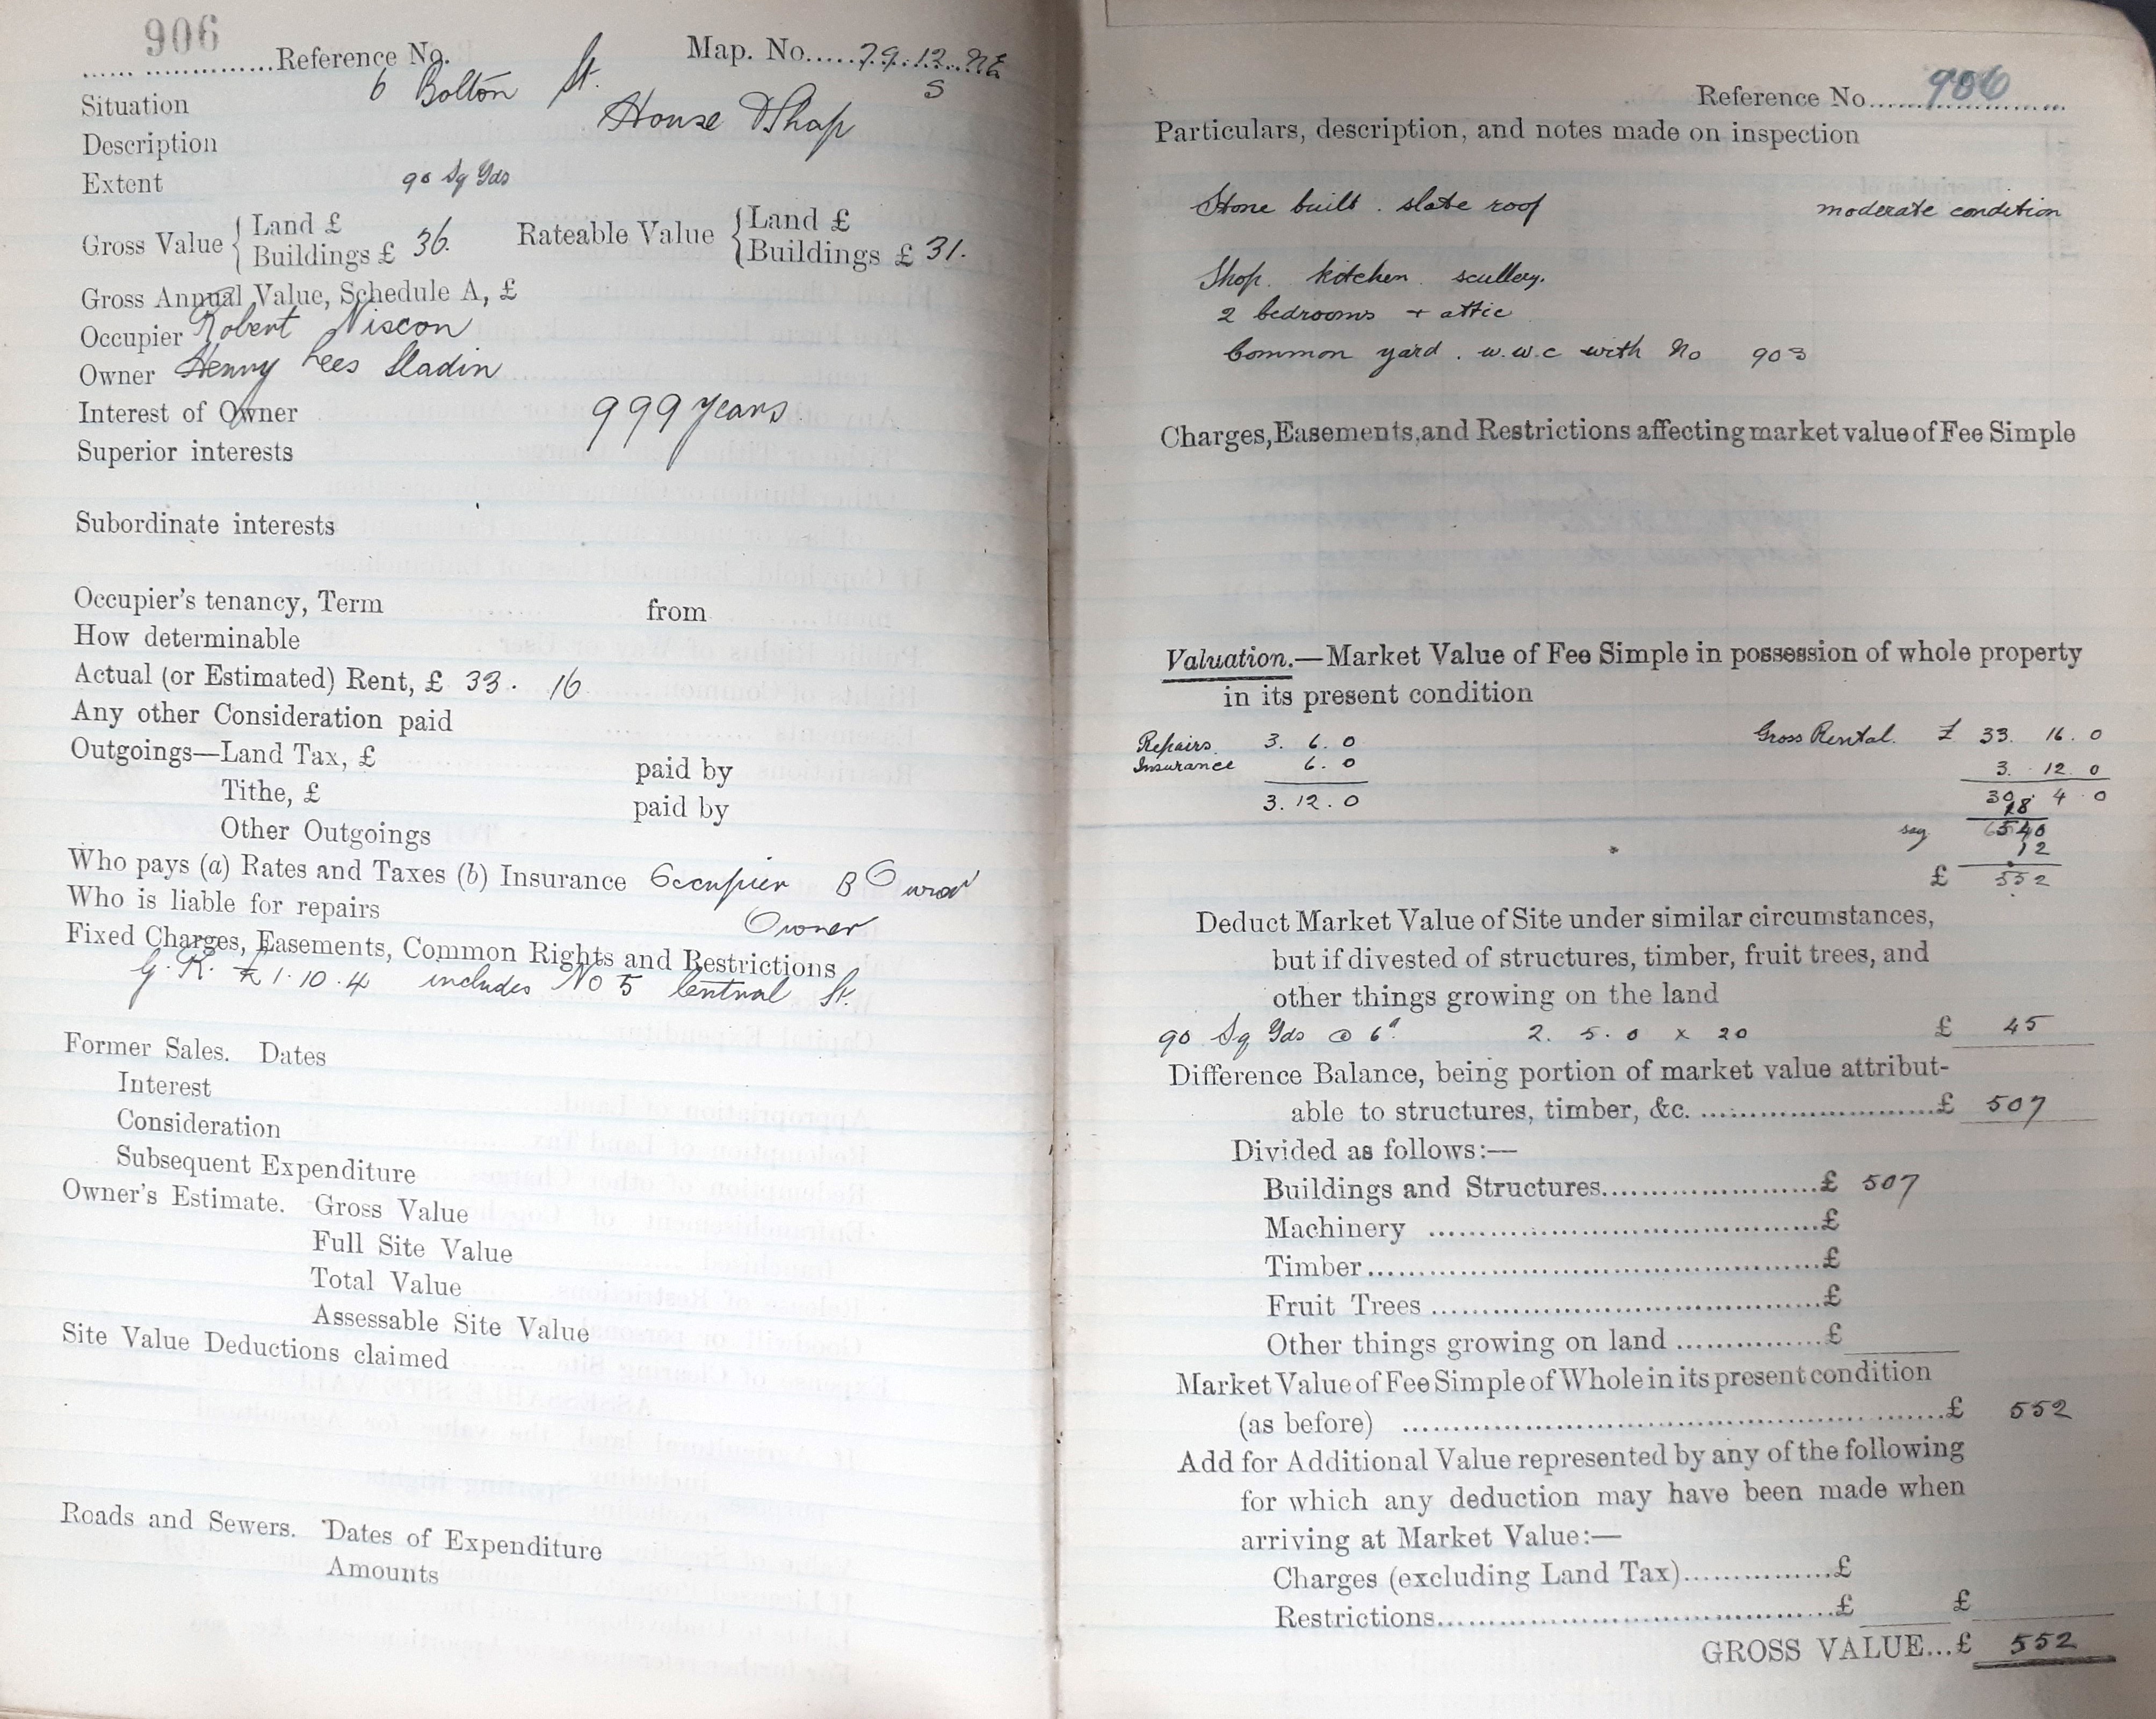 906
Reference No.
Map. No. 79.12.NE
S
Situation 6 Bolton St.
Description House & Shop
Extent 90 Sq Yds
Gross Value { Land £
Buildings £ 36.
Rateable Value { Land £
Buildings £ 31.
Gross Annual Value, Schedule A, £
Occupier Robert Niscon
Owner Henry Lees Sladin
Interest of Owner 999 years
Superior interests
Subordinate interests
Occupier's tenancy, Term from
How determinable
Actual (or Estimated) Rent, £ 33. 16
Any other Consideration paid
Outgoings—Land Tax, £ paid by
Tithe, £ paid by
Other Outgoings
Who pays (a) Rates and Taxes (b) Insurance Occupier B Owner
Who is liable for repairs Owner
Fixed Charges, Easements, Common Rights and Restrictions
G.R. £1.10.4 includes No 5 Central St.
Former Sales. Dates
Interest
Consideration
Subsequent Expenditure
Owner's Estimate. Gross Value
Full Site Value
Total Value
Assessable Site Value
Site Value Deductions claimed
Roads and Sewers. Dates of Expenditure
Amounts
Reference No. 906
Particulars, description, and notes made on inspection
Stone built. slate roof moderate condition
Shop. kitchen. scullery.
2 bedrooms + attic
Common yard. w.w.c with No 903
Charges, Easements, and Restrictions affecting market value of Fee Simple
Valuation.—Market Value of Fee Simple in possession of whole property
in its present condition
Repairs. 3. 6. 0 Gross Rental. £ 33. 16. 0
Insurance 6. 0 3. 12. 0
3. 12. 0 30. 4. 0
18
say 540
12
£ 552
Deduct Market Value of Site under similar circumstances,
but if divested of structures, timber, fruit trees, and
other things growing on the land
90 Sq Yds @ 6d. 2. 5. 0 x 20 £ 45
Difference Balance, being portion of market value attribut-
able to structures, timber, &c. £ 507
Divided as follows:—
Buildings and Structures £ 507
Machinery £
Timber £
Fruit Trees £
Other things growing on land £
Market Value of Fee Simple of Whole in its present condition
(as before) £ 552
Add for Additional Value represented by any of the following
for which any deduction may have been made when
arriving at Market Value:—
Charges (excluding Land Tax) £
Restrictions £ £
GROSS VALUE...£ 552